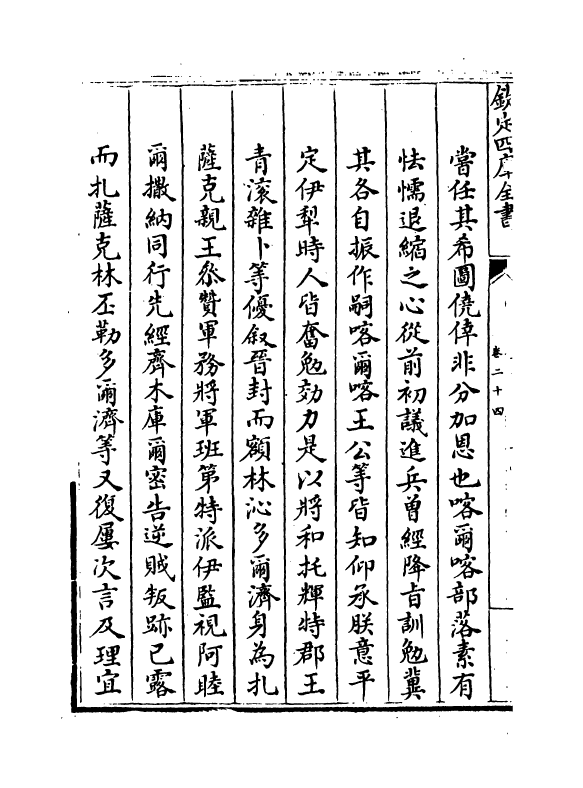 欽定四庫全書
卷二十四
當任其希圖僥倖非分加恩也喀爾喀部落素有
怯懦退縮之心從前初議進兵曾經降㫖訓勉冀
其各自振作嗣喀爾喀王公等皆知仰承朕意平
定伊犁時人皆奮勉効力是以將和托輝特郡王
青滚雜卜等優叙晉封而額林沁多爾濟身為扎
薩克親王叅贊軍務將軍班第特派伊監視阿睦
爾撒納同行先經齊木庫爾密告逆賊叛跡已露
而扎薩克林丕勒多爾濟等又復屢次言及理宜